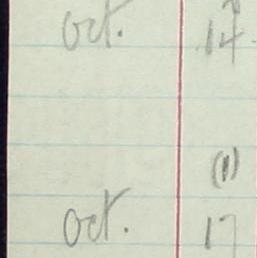 Oct. 14
(1)
Oct. 17